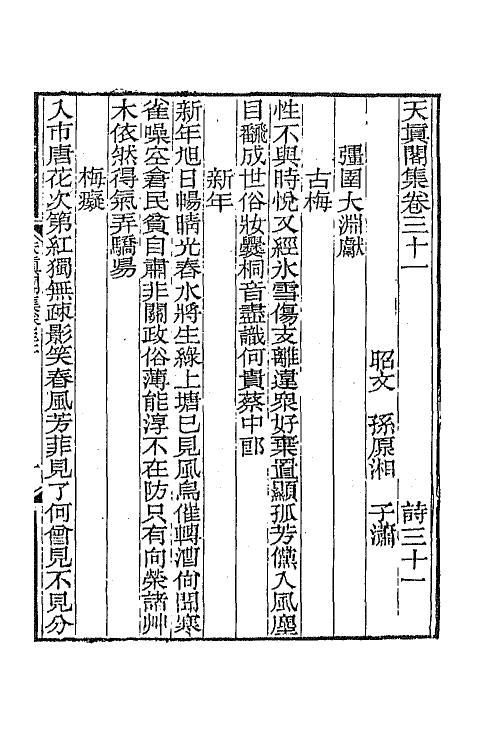 天眞閣集卷三十一　詩三十一
昭文　孫原湘　子瀟
彊圉大淵獻
古梅
性不與時悅又經氷雪傷支離違衆好棄置顯孤芳儻入風塵
目飜成世俗妝爨桐音盡識何貴蔡中郎
新年
新年旭日暢晴光春水將生綠上塘已見風烏催轉漕尙聞寒
雀噪空倉民貧自肅非關政俗薄能淳不在防只有向榮諸艸
木依然得氣弄驕昜
梅癡
入市唐花次第紅獨無疎影笑春風芳菲見了何曾見不見分